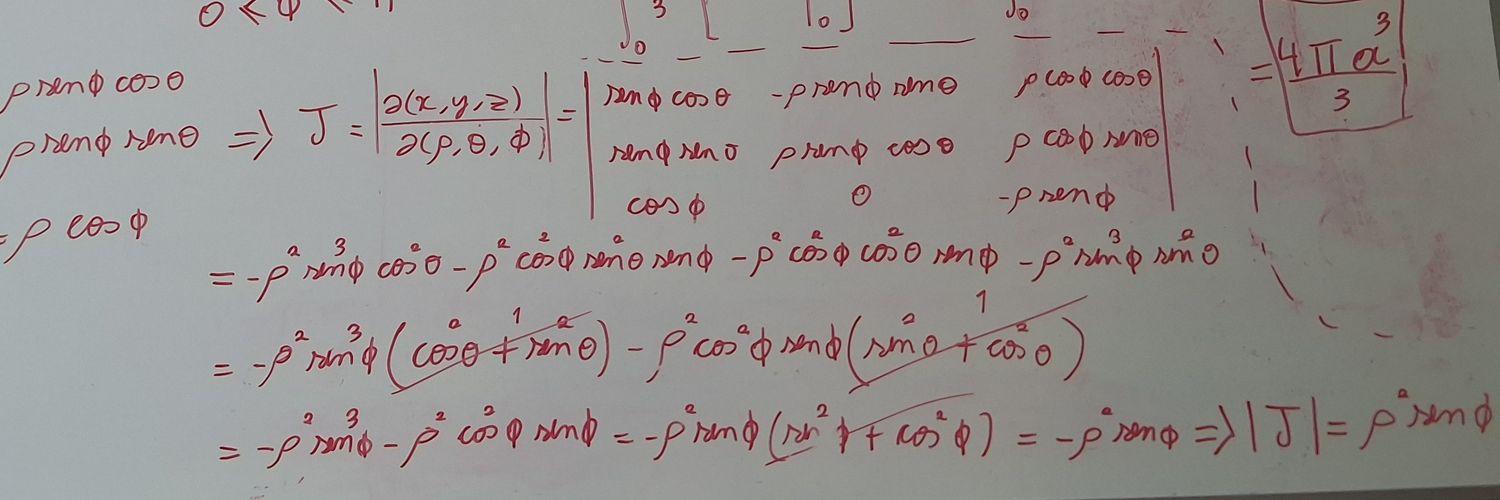 0 ≤ ϕ ≤ π
∫₀³ [ |₀ ] ∫₀
= 4πa³/3
ρ senϕ cosθ
ρ senϕ senθ ⇒ J = |∂(x,y,z)/∂(ρ,θ,ϕ)| = | senϕ cosθ   -ρ senϕ senθ   ρ cosϕ cosθ |
| senϕ senθ   ρ senϕ cosθ   ρ cosϕ senθ |
| cosϕ   0   -ρ senϕ |
= ρ cosϕ
= -ρ² sen³ϕ cos²θ - ρ² cos²ϕ sen²θ senϕ - ρ² cos²ϕ cos²θ senϕ - ρ² sen³ϕ sen²θ
= -ρ² sen³ϕ (cos²θ + sen²θ) 1 - ρ² cos²ϕ senϕ (sen²θ + cos²θ) 1
= -ρ² sen³ϕ - ρ² cos²ϕ senϕ = -ρ² senϕ (sen²ϕ + cos²ϕ) = -ρ² senϕ ⇒ |J| = ρ² senϕ